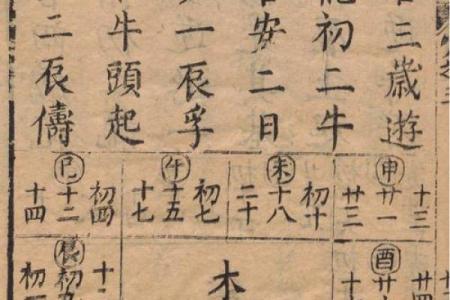 三歲遊
初二牛
安二日
一辰孚
牛頭起
二辰儔
申
十三
廿一
廿三
未
初十
十八
二十
午
初七
十五
十七
巳
初四
十二
十四
酉
木
辰